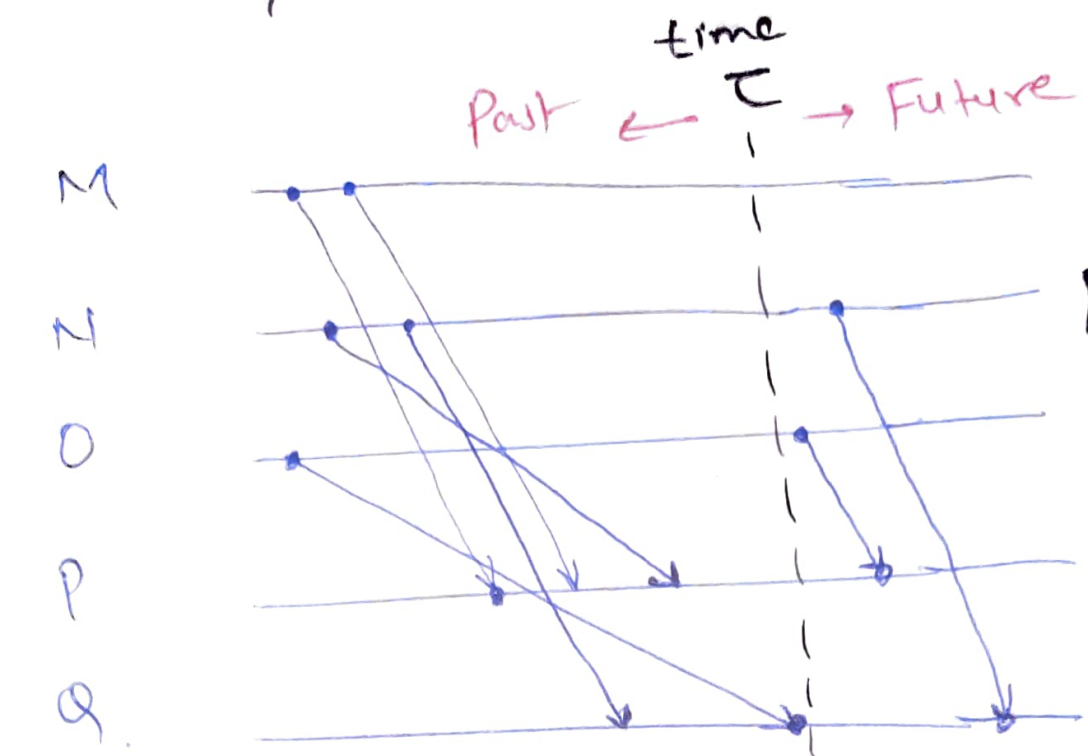 time
τ
Past ← → Future
M
N
O
P
Q